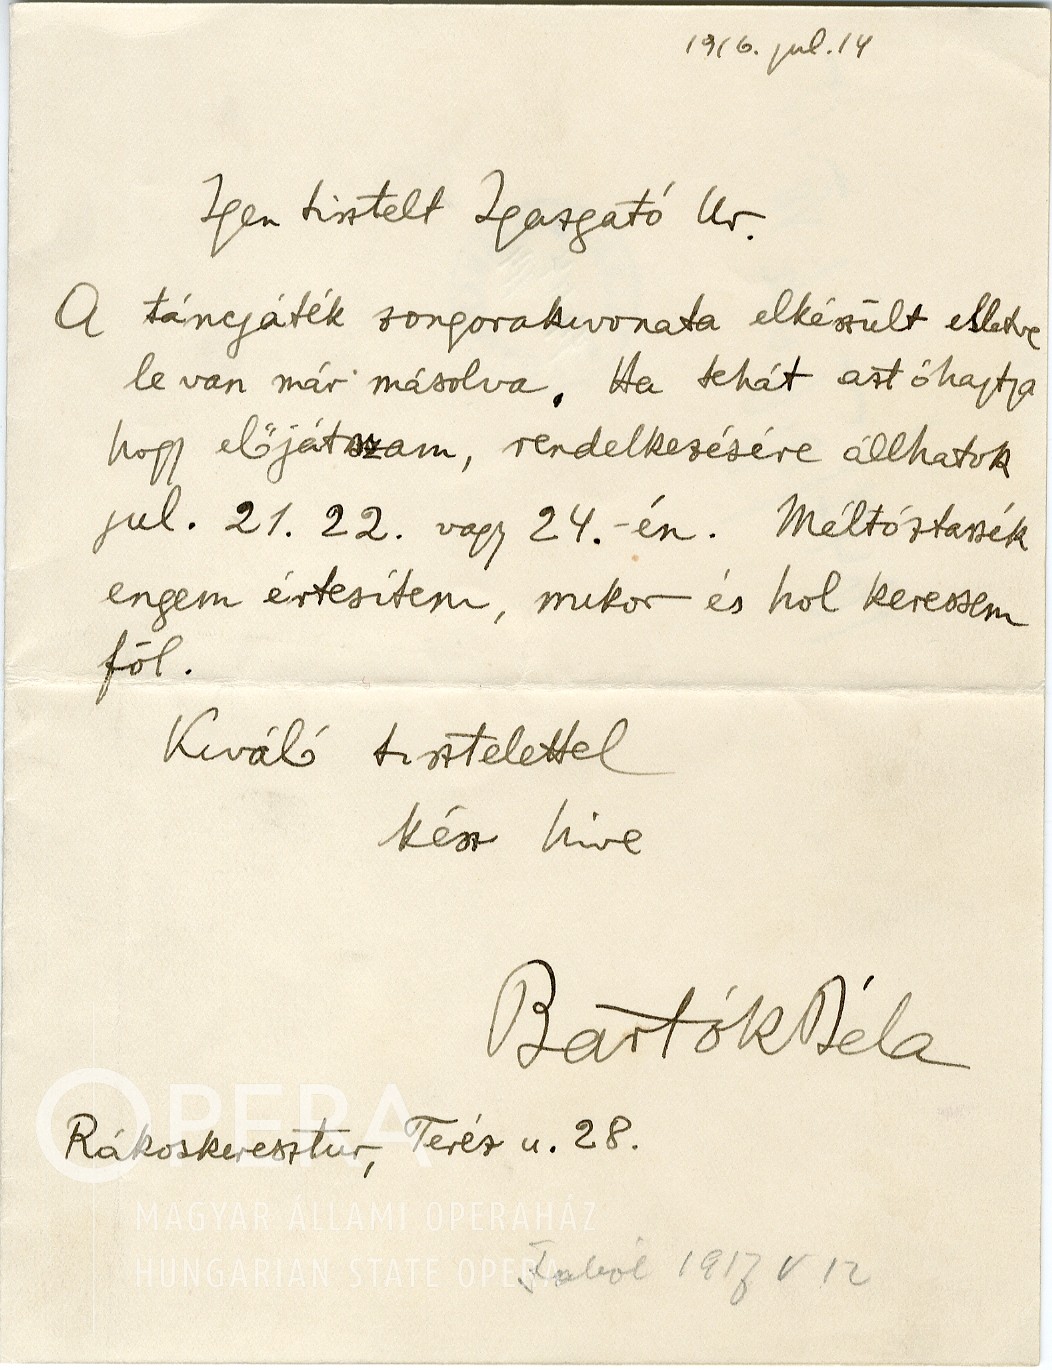 1916. jul. 14
Igen tisztelt Igazgató Ur.
A táncjáték zongorakivonata elkészült illetve
le van már másolva. Ha tehát azt óhajtja
hogy előjátszam, rendelkezésére állhatok
jul. 21. 22. vagy 24.-én. Méltóztassék
engem értesíteni, mikor és hol keressem
föl.
Kiváló tisztelettel
kész hive
Bartók Béla
Rákoskeresztur, Teréz u. 28.
OPERA
MAGYAR ÁLLAMI OPERAHÁZ
HUNGARIAN STATE OPERA
1917 V 12